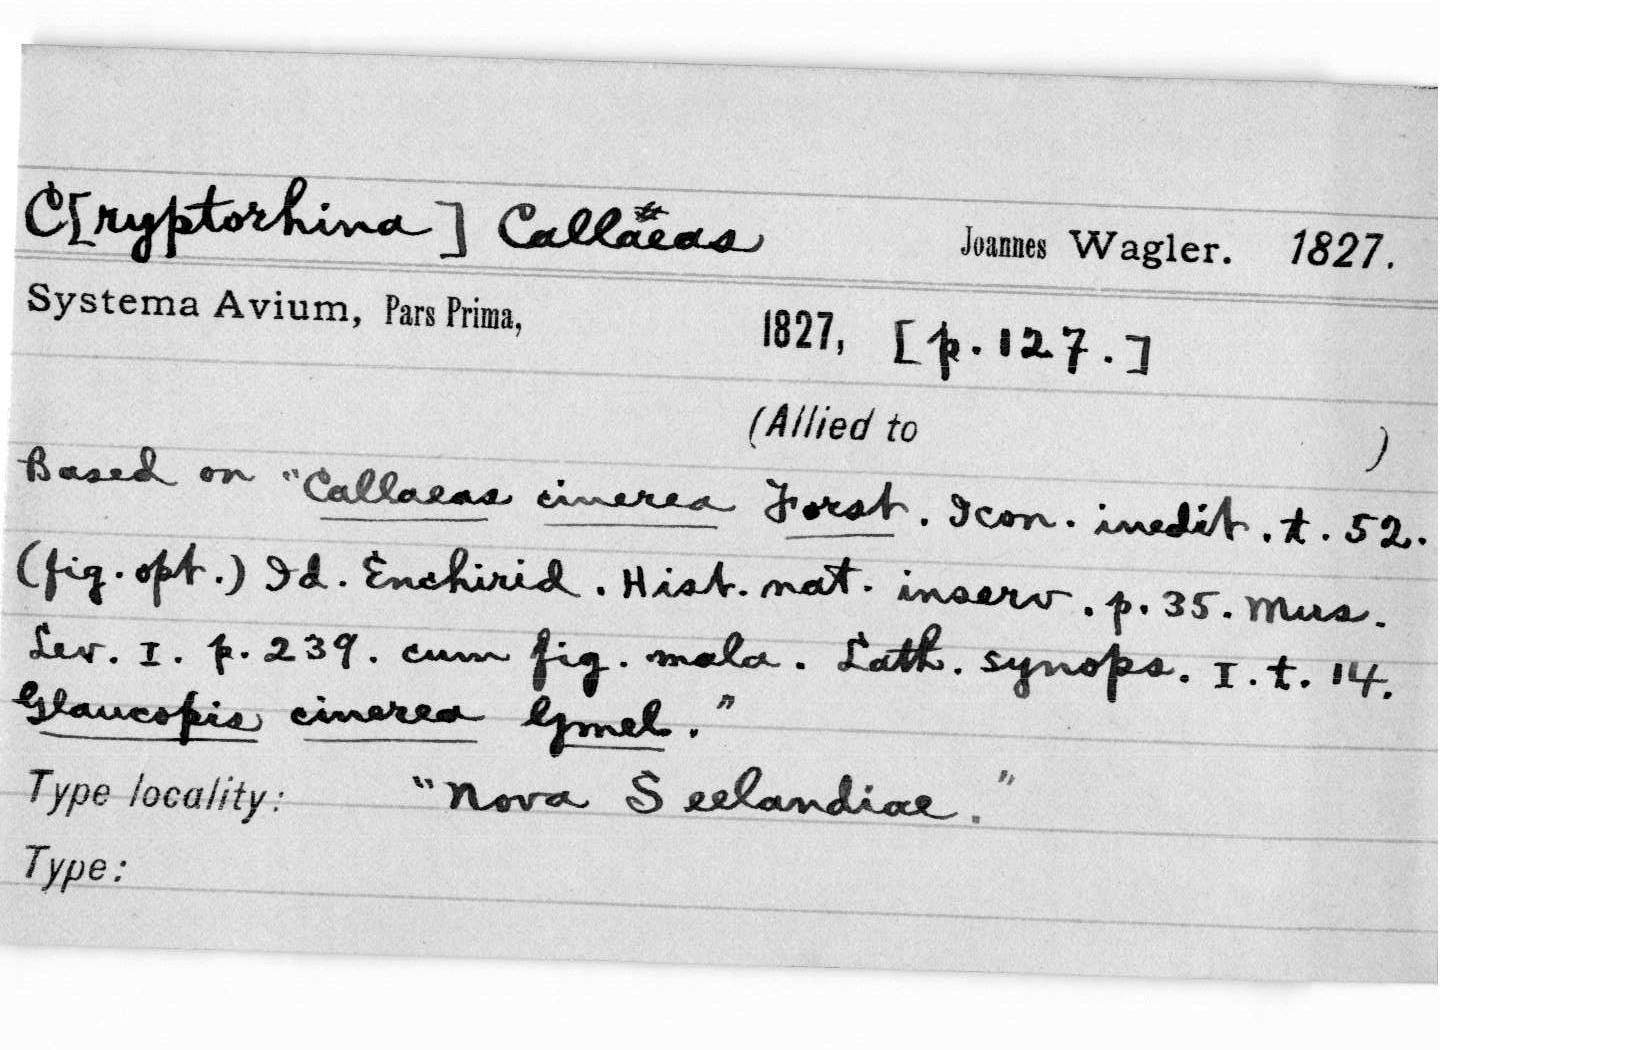 C[ryptorhina] Callaeas Joannes Wagler. 1827.
Systema Avium, Pars Prima, 1827, [p. 127.]
(Allied to )
Based on "Callaeas cinerea Forst. Icon. inedit. t. 52.
(fig. opt.) Id. Enchirid. Hist. nat. inserv. p. 35. Mus.
Lev. I. p. 239. cum fig. mala. Lath. synops. I. t. 14.
Glaucopis cinerea Gmel."
Type locality: "Nova Seelandiae."
Type: